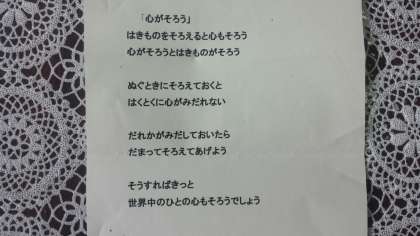 「心がそろう」
はきものをそろえると心もそろう
心がそろうとはきものがそろう
ぬぐときにそろえておくと
はくとくに心がみだれない
だれかがみだしておいたら
だまってそろえてあげよう
そうすればきっと
世界中のひとの心もそろうでしょう